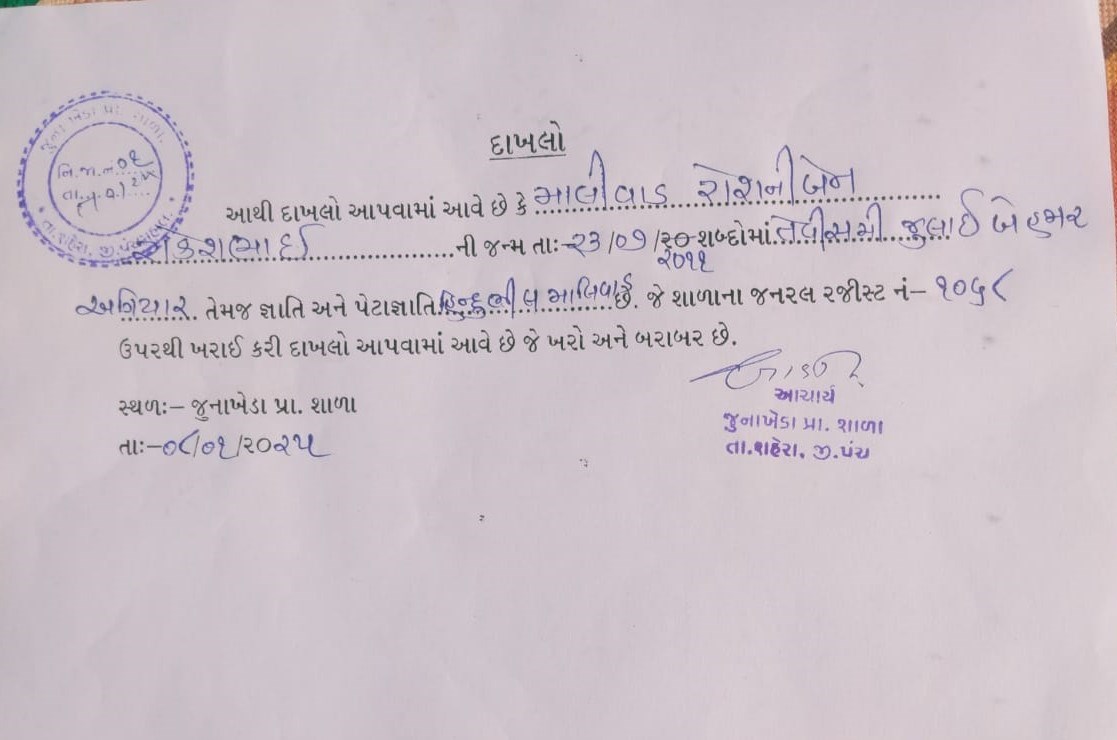 જુના ખેડા પ્રા. શાળા.
નિ.જા.નં 01
તા.શહેરા, જી.પંચમહાલ.
દાખલો
આથી દાખલો આપવામાં આવે છે કે માલીવાડ રોશનીબેન
રાકેશભાઈ ની જન્મ તાઃ-૨૩/૦૭/૨૦ શબ્દોમાં તેવીસમી જુલાઈ બે હજાર
૨૦૧૧
અગિયાર. તેમજ જ્ઞાતિ અને પેટાજ્ઞાતિ હિન્દુ ભીલ માલિવાડ છે. જે શાળાના જનરલ રજીસ્ટ નં– ૧૦૫૮
ઉપરથી ખરાઈ કરી દાખલો આપવામાં આવે છે જે ખરો અને બરાબર છે.
સ્થળઃ– જુનાખેડા પ્રા. શાળા
તાઃ–૦૮/૦૧/૨૦૨૫
આચાર્ય
જુનાખેડા પ્રા. શાળા
તા.શહેરા, જી.પંચ